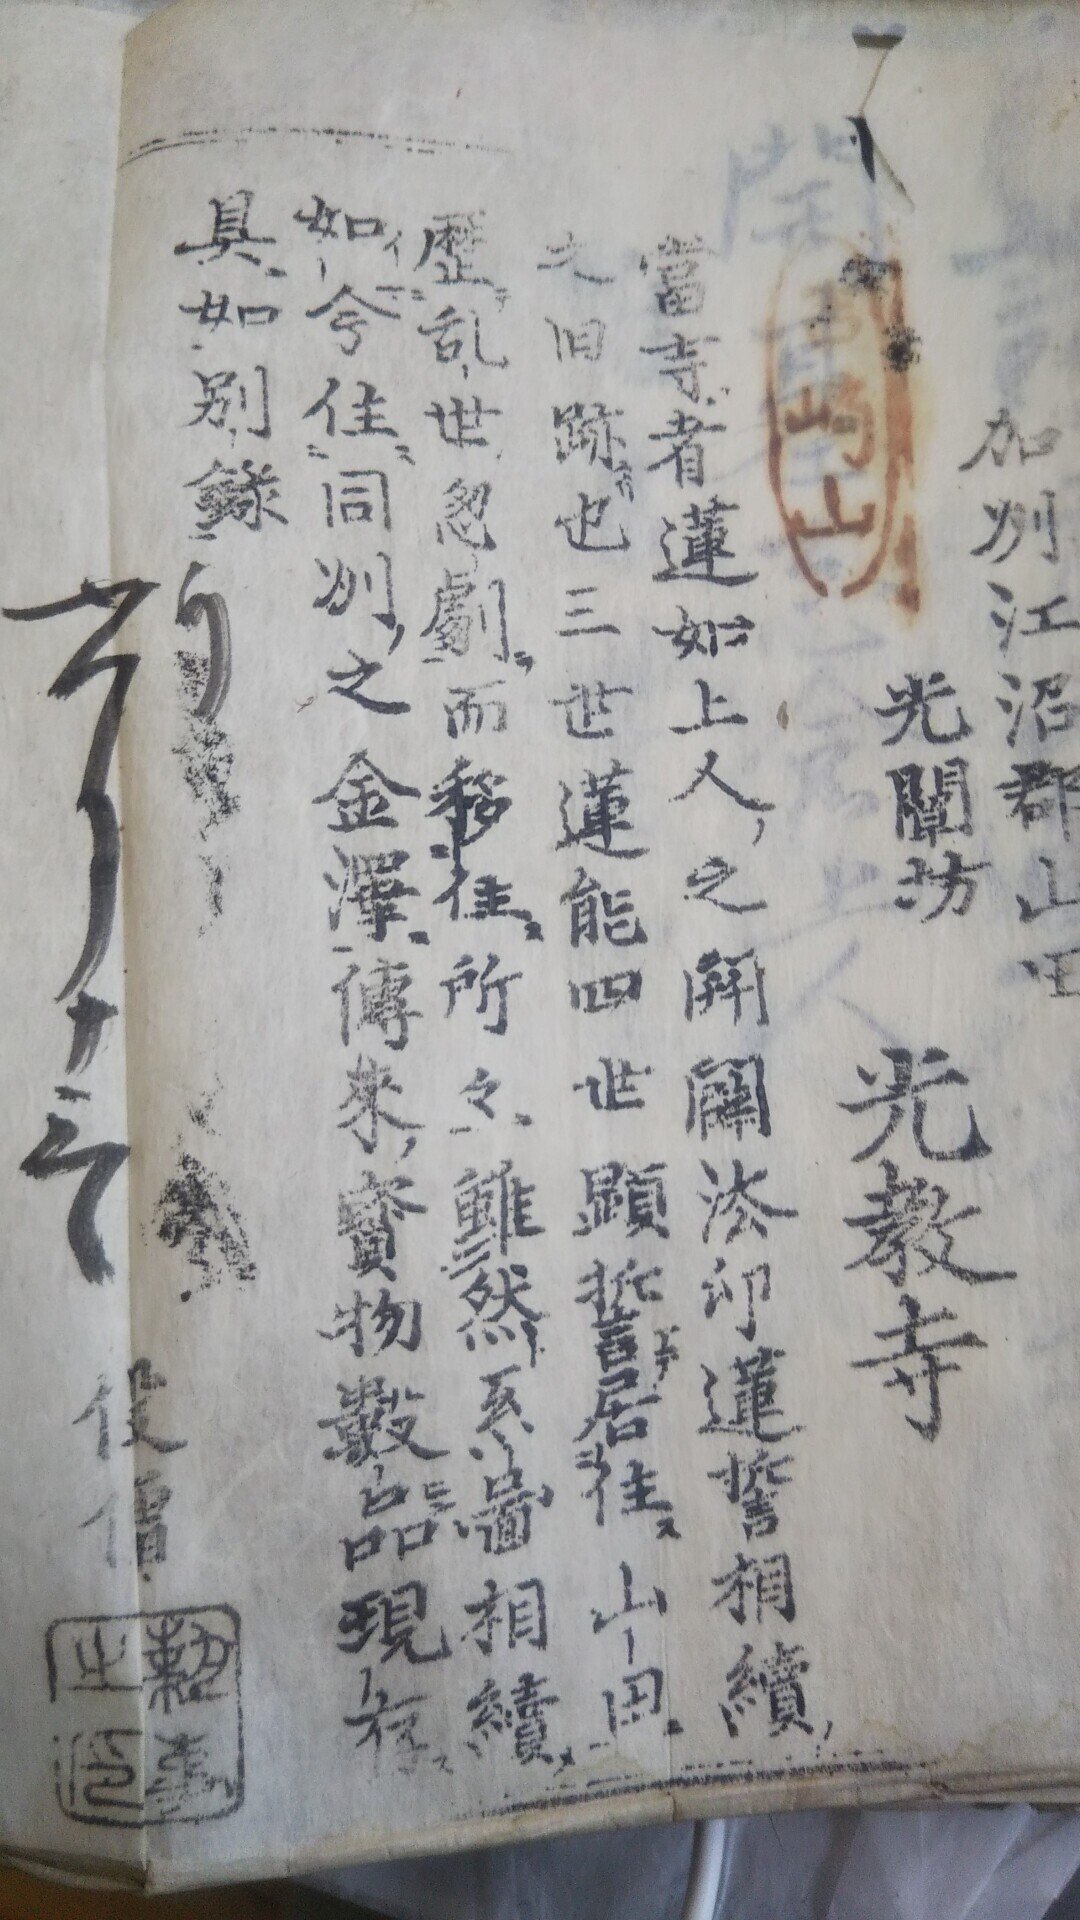 加刕江沼郡山田
光闡坊 光教寺
崎山
當寺者蓮如上人之開闢法印蓮誓相續
之旧跡也三世蓮能四世顕誓居住山田
歴乱世怱劇而移住所々雖然系圖相續
如今住同刕之金澤傳來寳物數品現存
具如別録
役僧